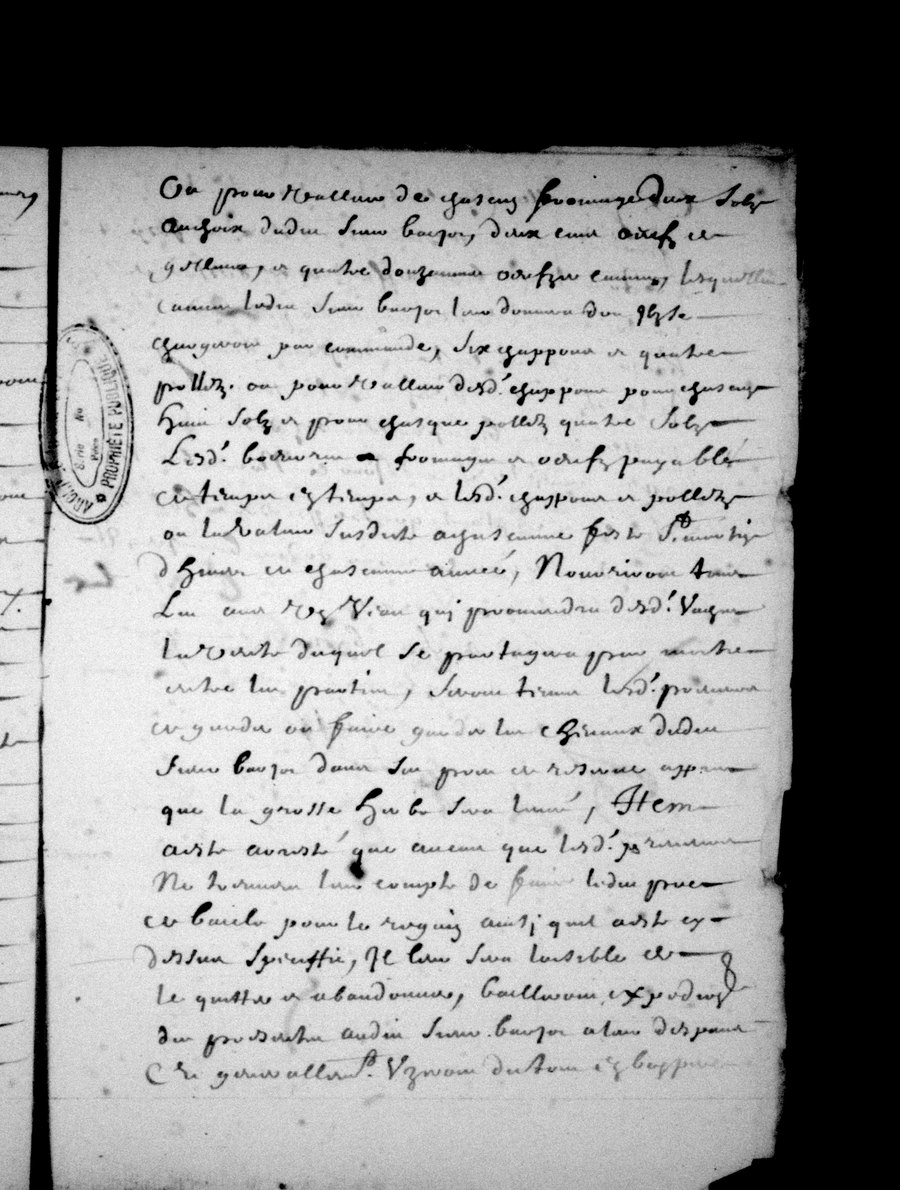 Ou pour valleur de chascung fromaige deux solz
au choix dudit sieur barjot, deux cent oeufz de
gelline, et quatre douzaines oeufz de cannes, lesquelles
cannes ledit sieur barjot leur donnera dont ilz se
chargeront par commande, six chappons et quatre
polletz ou pour valleur desd. chappons pour chascung
huict solz et pour chasque pollet quatre solz
Lesd. beurre fromages et oeufz payables
de temps en temps, et lesd. chappons et polletz
ou la valeur susdite a chascune feste St martin
d'hiver de chascune année, Nourriront tous
Les ans ung Veau qui proviendra desd. Vaches
la vente duquel se partagera par moitié
entre les parties, seront tenus lesd. preneurs
de garder ou faire garder les chevaux dudit
sieur barjot dans son pré de reserve appres
que la grosse herbe sera levée, Item
a esté arresté que au cas que lesd. preneurs
Ne treuvent leur compte de faire ledit prix
de baicle pour le regain ainsi que a esté cy
dessus speciffié, Il leur sera loisible de
le quitter et abandonner, bailleront expedition
des presentes audit sieur barjot a leur despens
Et generallement. Uzeront du tout en bons peres